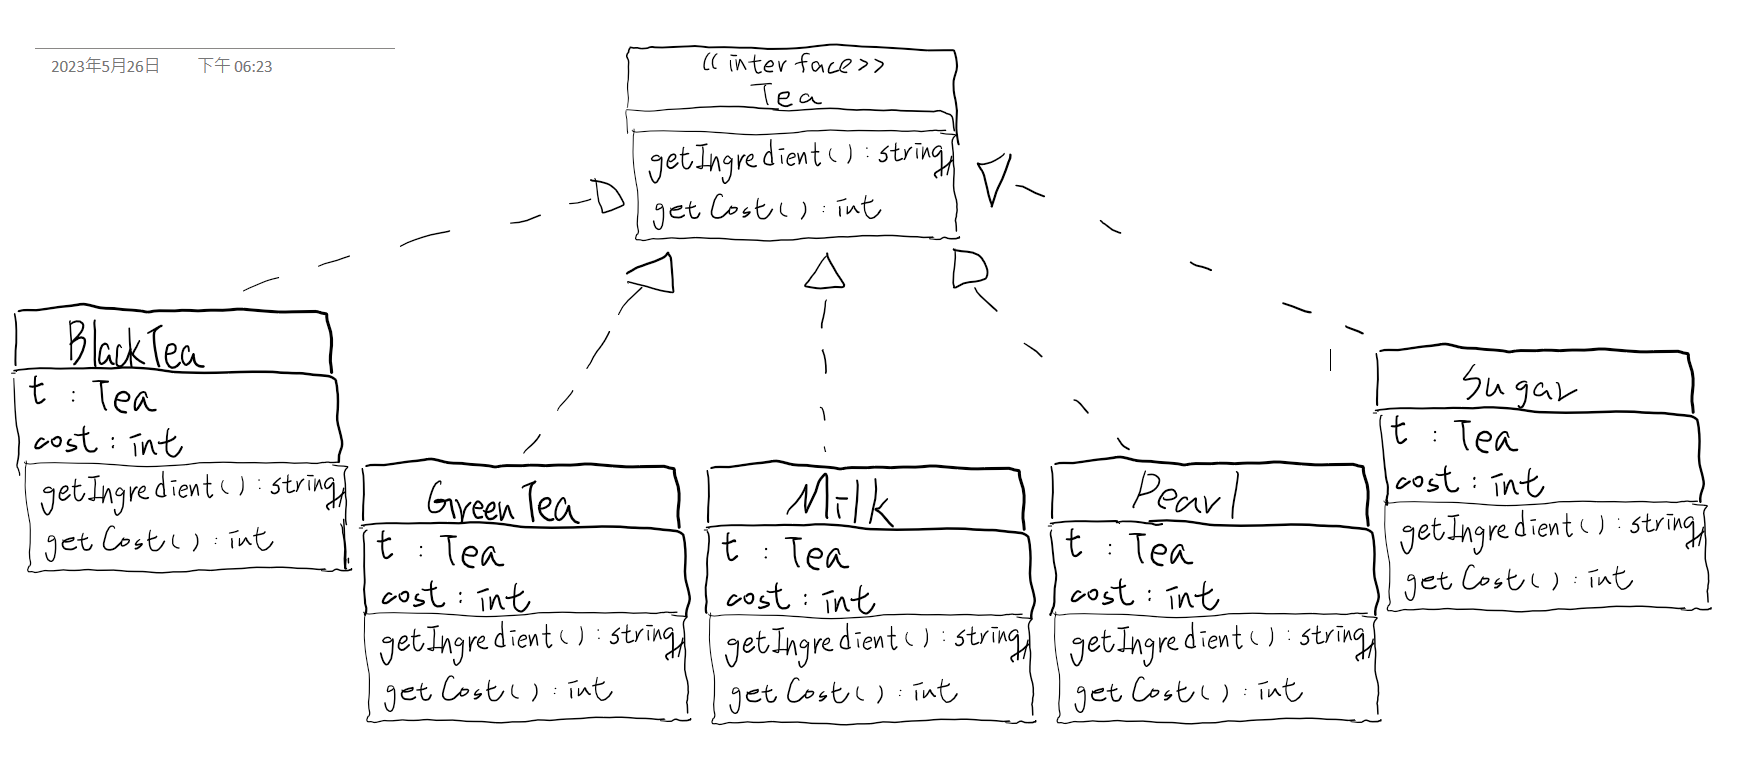 2023年5月26日 下午 06:23
<<interface>>
Tea
getIngredient():string
getCost():int
BlackTea
t : Tea
cost : int
getIngredient():string
getCost():int
GreenTea
t : Tea
cost : int
getIngredient():string
getCost():int
Milk
t : Tea
cost : int
getIngredient():string
getCost():int
Pearl
t : Tea
cost : int
getIngredient():string
getCost():int
Sugar
t : Tea
cost : int
getIngredient():string
getCost():int